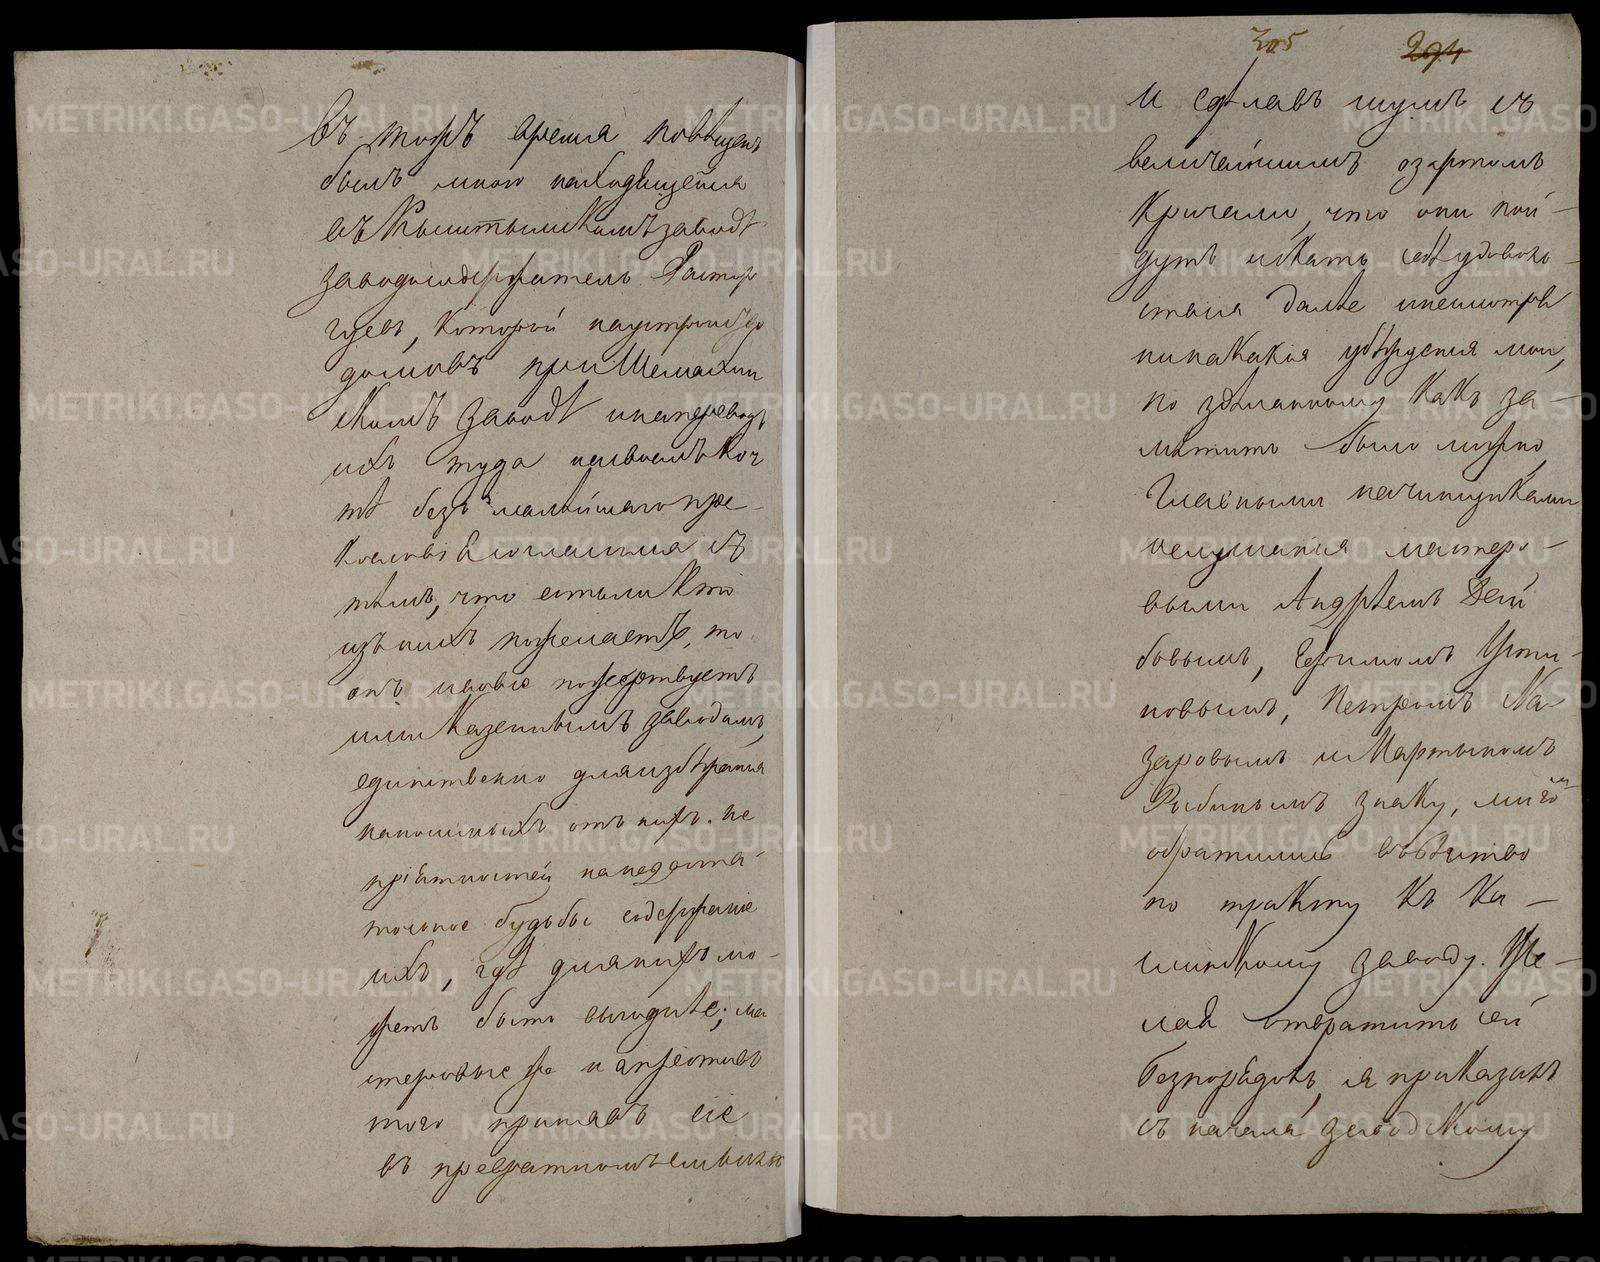 въ тожъ время повѣщенъ
былъ мною находящейся
въ Кыштымскомъ заводѣ
заводосодержатель Растор
гуевъ, которой на устройство
домовъ при Шемахин
скомъ заводѣ и на переводъ
ихъ туда на своемъ кош
тѣ безъ малѣйшаго пре
кословія согласился съ
тѣмъ, что естьли кто
изъ нихъ пожелаетъ, то
онъ иновые пожертвуетъ
или казеннымъ заводамъ,
единственно для избѣжанія
наносимыхъ отъ нихъ не
пріятностей на недоста
точное будьбы содержаніе
ихъ, гдѣ для нихъ мо-
жетъ быть выгоднѣе; ма
стеровые же на противъ
того принявъ сіе
въ превратномъ смыслѣ
305 294
и сдѣлавъ шумъ съ
величайшимъ азартомъ
кричали, что они пой-
дутъ искать себѣ удоволь-
ствія далѣе инесмотря
ни на какія убѣжденія мои,
по зделанному какъ за-
мѣтить было можно,
главными начинщиками
непослушанія мастеро-
выми Андреемъ Дей
бовымъ, Ефимомъ Усти-
новымъ, Петромъ На-
заровымъ и Мартыномъ
Рыбинымъ знаку, мигомъ
обратились въ бѣгство
по тракту къ Ка-
слинскому заводу. Же-
лая отвратить сей
безпорядокъ, я приказалъ
съ начала заводскому
METRIKI.GASO-URAL.RU